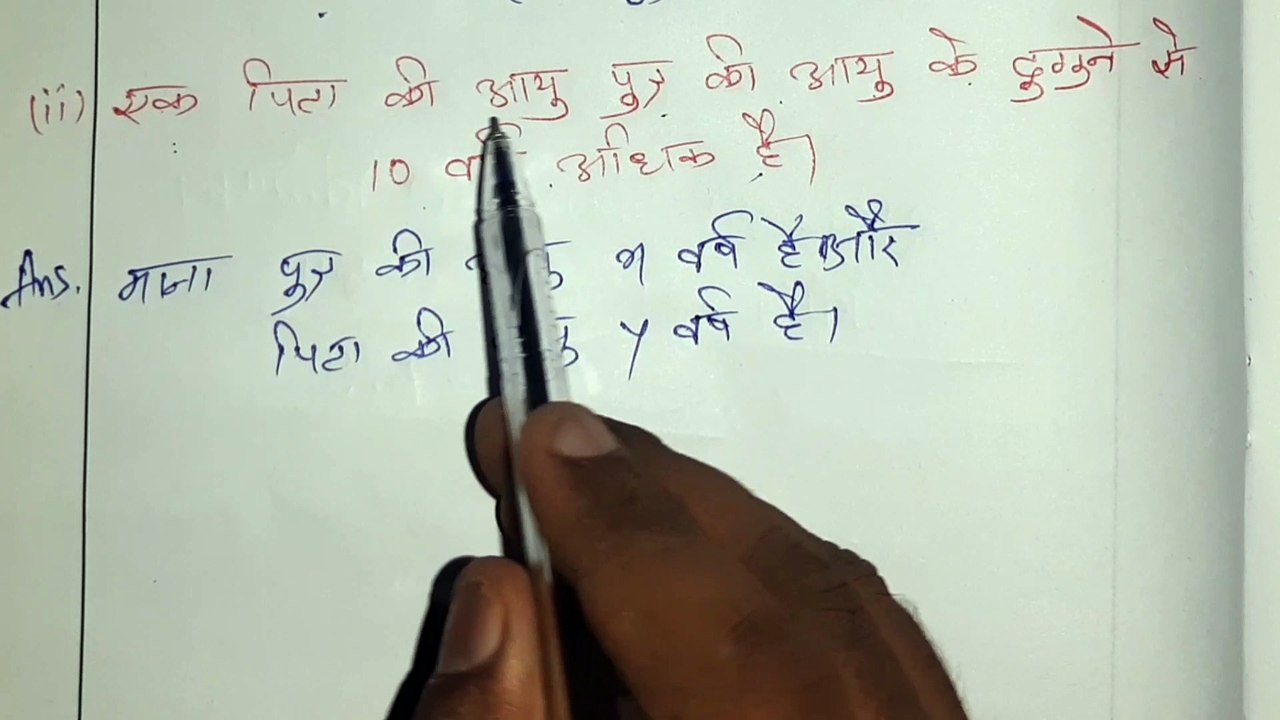 (ii) एक पिता की आयु पुत्र की आयु के दुगुने से
10 अधिक है।
Ans. माना पुत्र की x वर्ष है और
पिता की y वर्ष है।